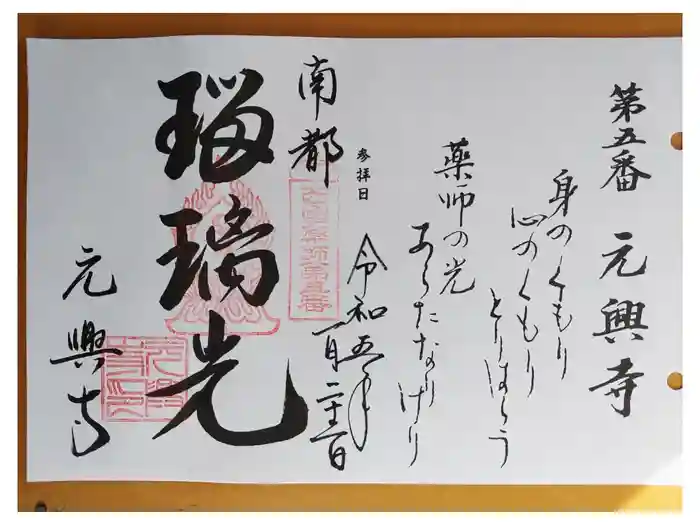 第五番 元興寺
身のくもり
心のくもり
とりはらう
薬師の光
あらたなり
けり
参拝日
令和五年
一月二十一日
南都
西国薬師第五番
瑠璃光
元興寺